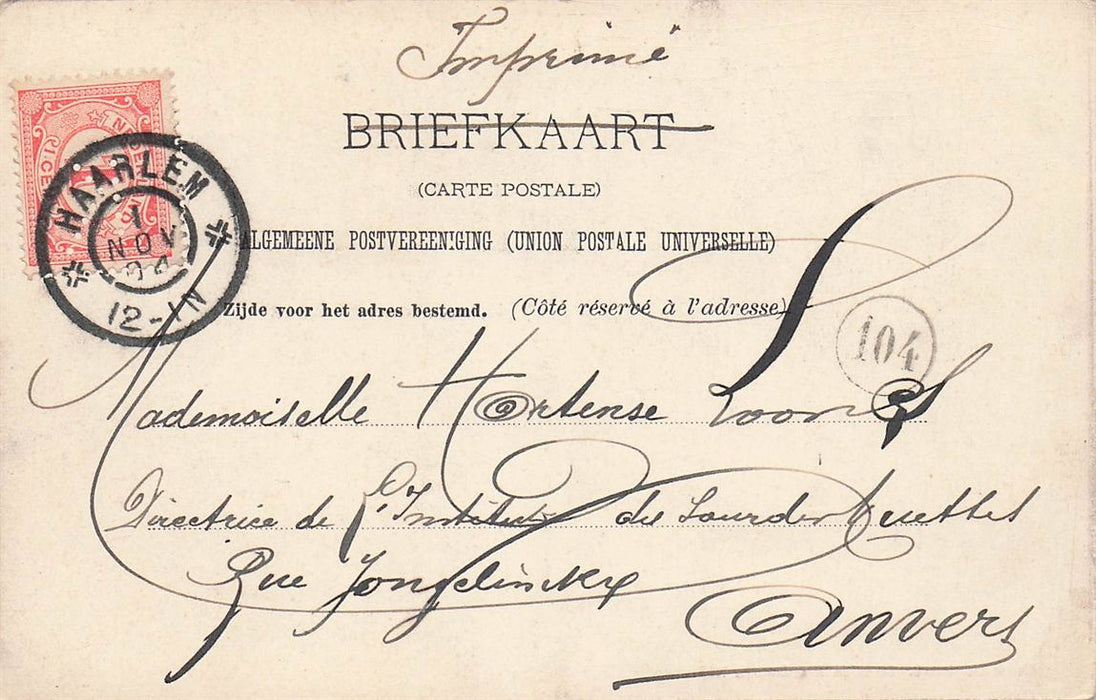 Imprimé
BRIEFKAART
(CARTE POSTALE)
HAARLEM
1
NOV
04
12-1N
ALGEMEENE POSTVEREENIGING (UNION POSTALE UNIVERSELLE)
Zijde voor het adres bestemd. (Côté réservé à l'adresse)
104
Mademoiselle Hortense
Directrice de l'Institut des Sourdes Muettes
Rue Jongelinckx
Anvers